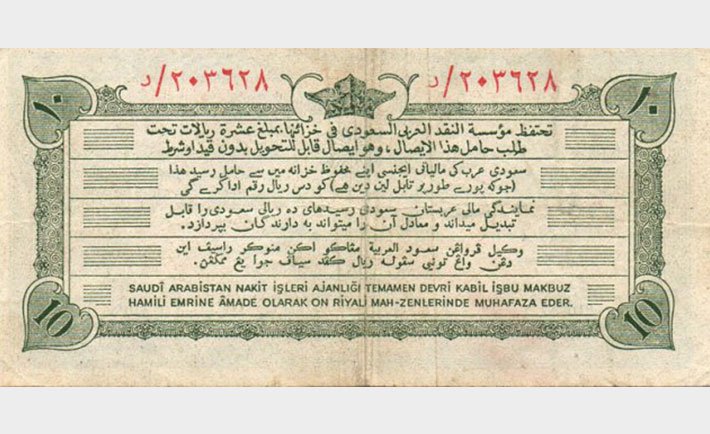 د/٢٠٣٦٢٨ د/٢٠٣٦٢٨
١٠ ١٠
تحتفظ مؤسسة النقد العربى السعودى فى خزائنها بمبلغ عشرة ريالات تحت
طلب حامل هذا الايصال ، وهو ايصال قابل للتحويل بدون قيد اوشرط
سعودی عرب کی مالیاتی ایجنسی اپنے محفوظ خزانہ میں سے حامل رسید هذا
(جوکہ پورے طور پر قابل لین دین ہے) کو دس ریال رقم ادا کرے گی
نمایندگی مالی عربستان سعودی رسیدهای ده ریالی سعودی را قابل
تبدیل میداند و معادل آن را میتواند به دارندگان بپردازد.
وكيل سعود العربية اين
دڠن ريال يڠ
SAUDÎ ARABİSTAN NAKİT İŞLERİ AJANLIĞI TEMAMEN DEVRİ KABİL İŞBU MAKBUZ
HAMİLİ EMRİNE ÂMADE OLARAK ON RİYALİ MAH-ZENLERİNDE MUHAFAZA EDER.
10 10